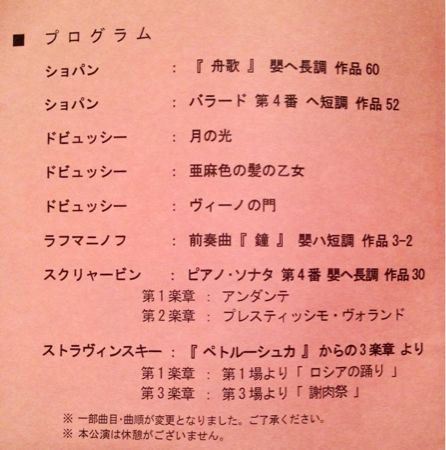 ■ プログラム
ショパン : 『 舟歌 』 嬰ヘ長調 作品60
ショパン : バラード 第4番 ヘ短調 作品52
ドビュッシー : 月の光
ドビュッシー : 亜麻色の髪の乙女
ドビュッシー : ヴィーノの門
ラフマニノフ : 前奏曲『 鐘 』 嬰ハ短調 作品3-2
スクリャービン : ピアノ・ソナタ 第4番 嬰ヘ長調 作品30
第1楽章 : アンダンテ
第2楽章 : プレスティッシモ・ヴォランド
ストラヴィンスキー : 『 ペトルーシュカ 』 からの3楽章 より
第1楽章 : 第1場より「 ロシアの踊り 」
第3楽章 : 第3場より「 謝肉祭 」
※ 一部曲目・曲順が変更となりました。ご了承ください。
※ 本公演は休憩がございません。